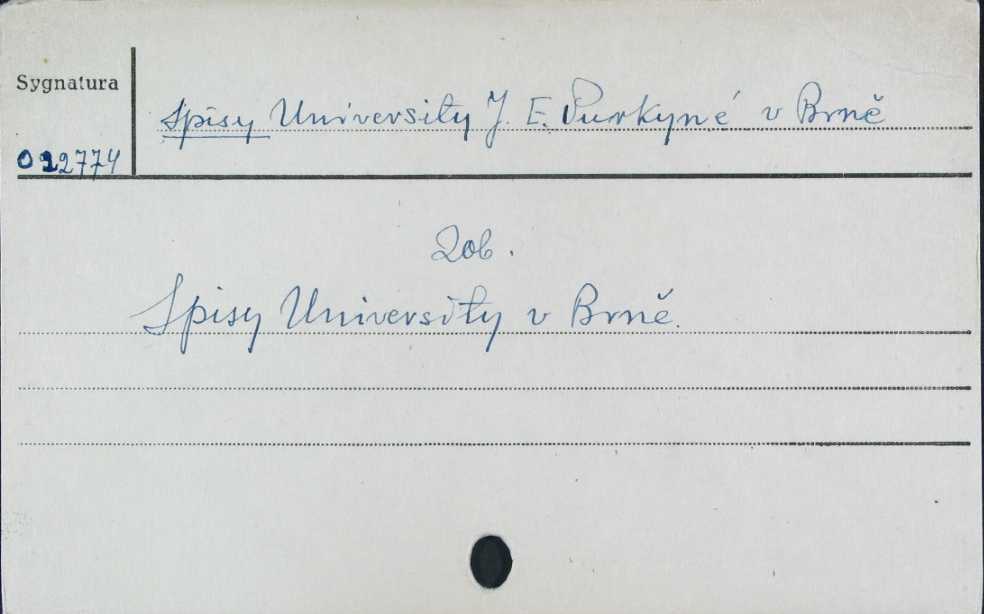 Sygnatura
Spisy University J. E. Purkyné v Brně
012774
Zob.
Spisy University v Brně.